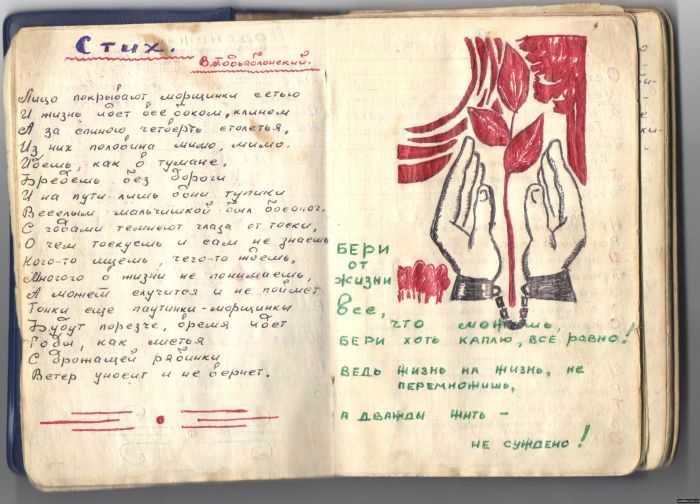 Стих.
В. Подъаблонский.
Лицо покрывают морщинки сетью
И жизнь идет все боком, клином
А за спиною четверть столетья,
Из них половина мимо, мимо.
Идешь, как в тумане,
Бредешь без дороги
И на пути лишь одни тупики
Веселым мальчишкой был босоног.
С годами темнеют глаза от тоски,
О чем тоскуешь и сам не знаешь
Кого-то ищешь, чего-то ждешь,
Многого в жизни не понимаешь,
А может случится и не поймет
Тонки еще паутинки-морщинки
Будут порезче, время идет
Годы, как листья
С дрожащей рябинки
Ветер уносит и не вернет.
БЕРИ
ОТ
ЖИЗНИ
Все,
ЧТО МОЖЕШЬ,
БЕРИ ХОТЬ КАПЛЮ, ВСЕ РАВНО!
ВЕДЬ ЖИЗНЬ НА ЖИЗНЬ, НЕ
ПЕРЕМНОЖИШЬ,
А ДВАЖДЫ ЖИТЬ –
НЕ СУЖДЕНО!